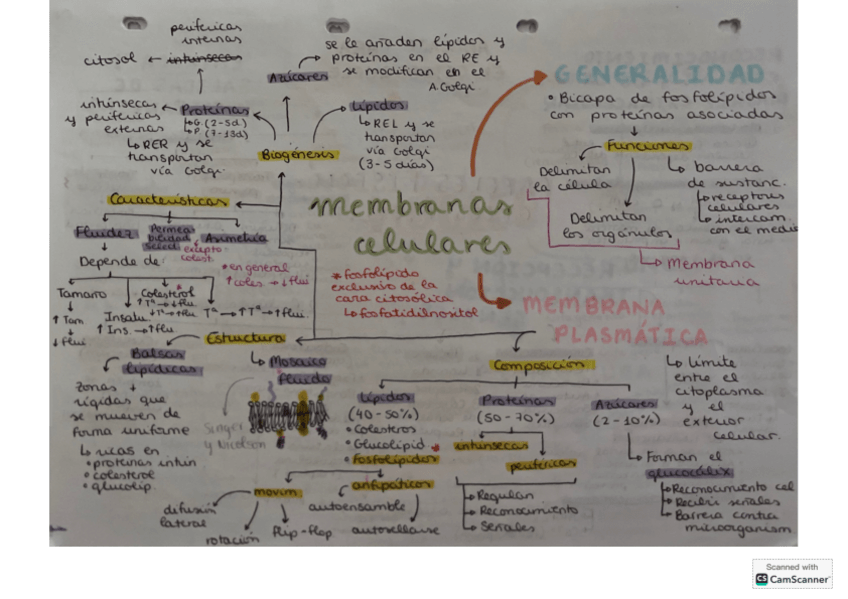 membranas
celulares
GENERALIDAD
• Bicapa de fosfolípidos
con proteínas asociadas
Funciones
Delimitan
la célula
Delimitan
los orgánulos
Membrana
unitaria
barrera
de sustanc.
receptores
celulares
intercam.
con el medio
MEMBRANA
PLASMÁTICA
Límite
entre el
citoplasma
y el
exterior
celular.
Composición
Lípidos
(40-50%)
• Colesteros
• Glucolípid
• Fosfolípidos
* fosfolípido
exclusivo de la
cara citosólica
fosfatidilinositol
movim
difusión
lateral
rotación
flip-flop
anfipáticos
autoensamble
autosellarse
Proteínas
(50-70%)
intrínsecas
periféricas
Regulan
Reconocimiento
Señales
Azúcares
(2-10%)
Forman el
glucocálix
Reconocimiento cel
Recibir señales
Barrera contra
microorganism
Estructura
Balsas
lipídicas
zonas +
rígidas que
se mueven de
forma uniforme
ricas en
• proteínas intrín
• colesterol
• glucolip.
Mosaico
fluido
Singer
y Nicolson
Características
Fluidez
Permea
bilidad
select
Asimetría
excepto
colest.
Depende de
Tamaño
↑ Tam
↓ flui
Insatu
↑ Ins. → ↑ flu
Colesterol
↑Tª → ↓flu
↓Tª → ↑flu
Tª → ↑Tª → ↑flui.
* en general
↑ coles → ↓ flui
Biogénesis
Proteínas
G. (2-5d)
P. (7-13d)
RER y se
transportan
vía Golgi
intrínsecas
y periféricas
externas
periféricas
internas
intrínsecas
citosol
Azúcares
se le añaden lípidos y
proteínas en el RE y
se modifican en el
A. Golgi
Lípidos
REL y se
transportan
vía Golgi
(3-5 días)
Scanned with
CS CamScanner